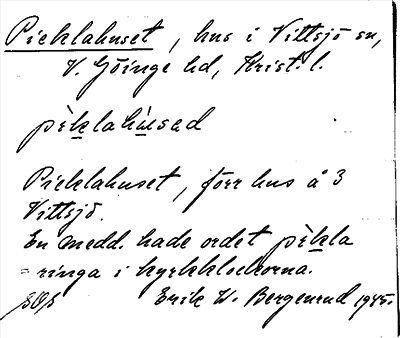 Picklahuset, hus i Vittsjö sn,
V. Göinge hd, Krist. l.
pìklahúsad
Picklahuset, förr hus å 3
Vittsjö.
En medd. hade ordet pìkla
= ringa i kyrkklockorna.
Erik W. Bergenrud 1945.